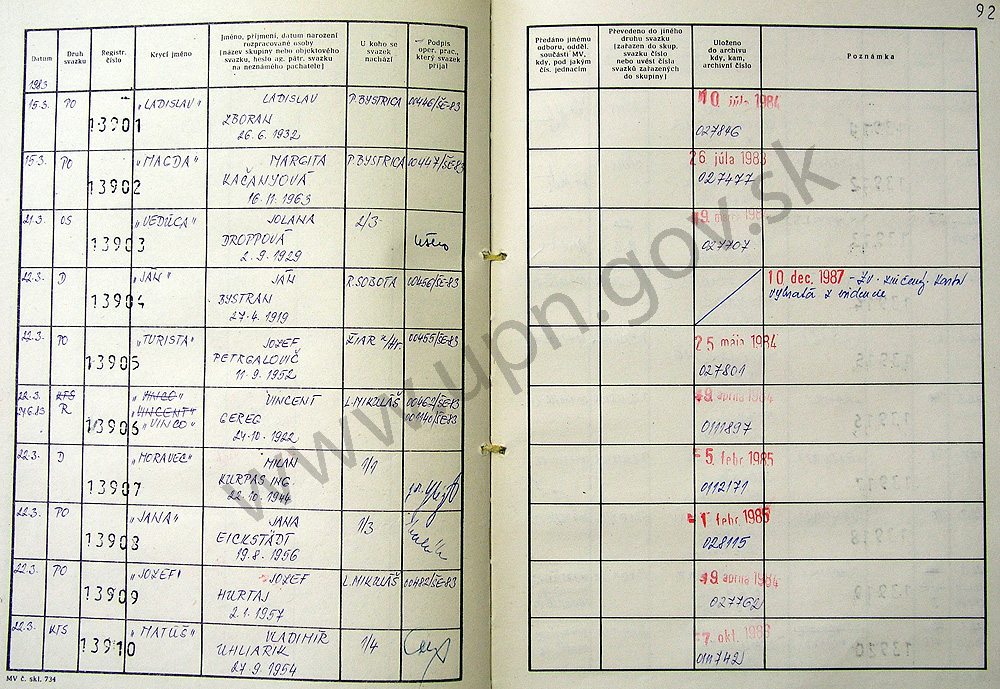 92
Datum
Druh svazku
Registr. číslo
Krycí jméno
Jméno, příjmení, datum narození
rozpracované osoby
(název skupiny nebo objektového
svazku, heslo ag. pátr. svazku
na neznámého pachatele)
U koho se
svazek
nachází
Podpis
oper. prac.,
který svazek
přijal
Předáno jinému
odboru, odděl.
součásti MV,
kdy, pod jakým
čís. jednacím
Převedeno do jiného
druhu svazku
(zařazen do skup.
svazku číslo
nebo uvést čísla
svazků zařazených
do skupiny)
Uloženo
do archivu
kdy, kam,
archivní číslo
Poznámka
1983
15.3. PO 13901 "LADISLAV" LADISLAV P. BYSTRICA 00446/ŠE-83 10 júla 1984
ZBORAN
26.6.1932 027846
15.3. PO 13902 "MAGDA" MARGITA P. BYSTRICA 00447/ŠE-83 26 júla 1983
KAČANYOVÁ 027477
16.11.1963
21.3. OS 13903 "VEDÚCA" JOLANA 2/3
DROPPOVÁ
2.9.1929 027707
22.3. D 13904 "JÁN" JÁN R. SOBOTA 00456/ŠE-83 10 dec. 1987
BYSTRAN
27.4.1919
22.3. PO 13905 "TURISTA" JOZEF ŽIAR n/Hr. 00455/ŠE-83 25 mája 1984
PETRGALOVIČ
11.9.1952 027801
22.3. KTS 13906 "VINCENT" VINCENT L. MIKULÁŠ 00462/ŠE-83 apríla 1984
24.6.83 R "VINCO" GEREG 001140/ŠE-83
24.10.1922 0111897
22.3. D 13907 "MORAVEC" MILAN 1/1 5 febr. 1985
KURPAS ING.
22.10.1944 0112171
22.3. PO 13908 "JANA" JANA 1/3 1 febr. 1985
EICKSTÄDT
19.8.1956 028115
22.3. PO 13909 "JOZEF" JOZEF L. MIKULÁŠ 00482/ŠE-83 9 apríla 1984
HURTAJ
2.1.1957 027762
22.3. KTS 13910 "MATÚŠ" VLADIMÍR 1/4 7 okt.
UHLIARIK
27.9.1954 0111742
MV č. skl. 734
www.upn.gov.sk